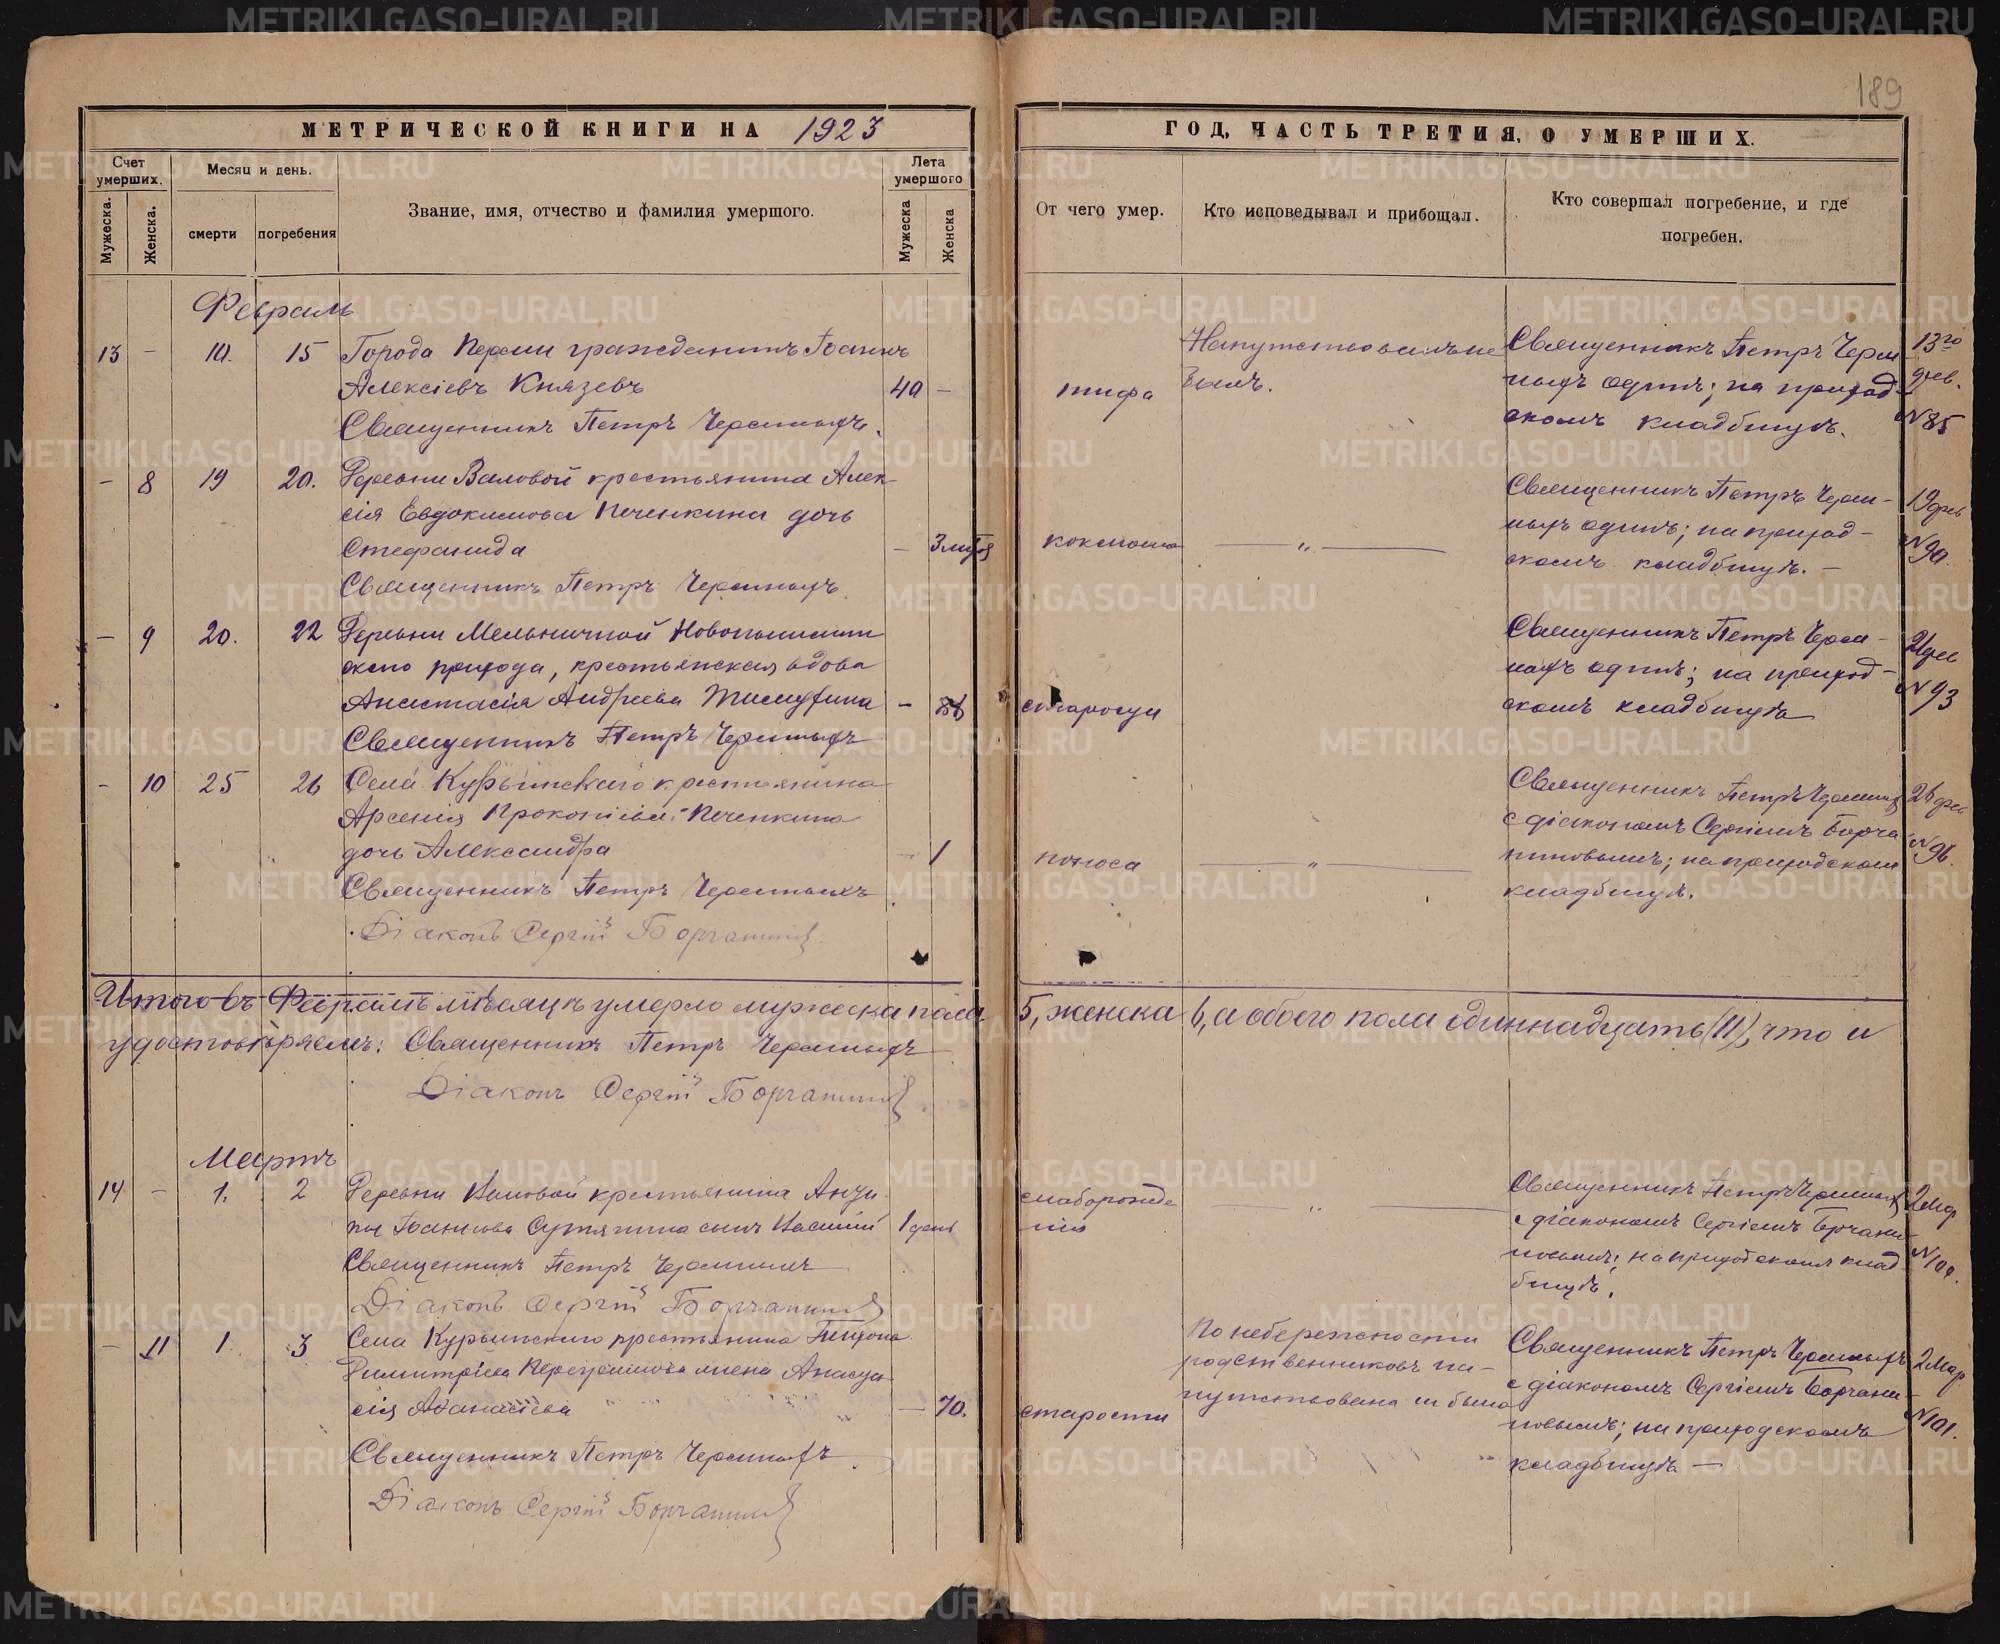 189
МЕТРИЧЕСКОЙ КНИГИ НА 1923
ГОД, ЧАСТЬ ТРЕТИЯ, О УМЕРШИХ.
Счет умерших.
Мужеска.
Женска.
Месяц и день.
смерти
погребения
Звание, имя, отчество и фамилия умершого.
Лета умершого
Мужеска
Женска
От чего умер.
Кто исповедывал и прибощал.
Кто совершал погребение, и где
погребен.
Февраль
13 - 10. 15 Города Перми гражданинъ Іоаннъ
Алексіевъ Князевъ 40 -
Священникъ Петръ Черемныхъ.
тифа
былъ.
Священникъ Петръ Черем-
ныхъ одинъ; на приход-
скомъ кладбищѣ.
13го
фев.
№85
- 8 19 20. Деревни Валовой крестьянина Алек-
сія Евдокимова Печенкина дочь
Стефанида -
Священникъ Петръ Черемныхъ.
коклюша
— „ —
Священникъ Петръ Черем-
ныхъ одинъ; на приход-
скомъ кладбищѣ. —
19 фев
№90.
- 9 20. 22 Деревни Мельничной
прихода, крестьянская вдова
Анастасія Андреева -
Священникъ Петръ Черемныхъ
старости
Священникъ Петръ Черем-
ныхъ одинъ; на приход-
скомъ кладбищѣ
21 фев
№93
- 10 25 26 Села Курьинского крестьянина
Арсенія Прокопіева Печенкина
дочь Александра - 1
Священникъ Петръ Черемныхъ
Діаконъ Сергій Борчаниновъ
поноса
— „ —
Священникъ Петръ Черемныхъ
с діакономъ Сергіемъ Борча
ниновымъ; на приходскомъ
кладбищѣ.
26 фев
№96.
Итого въ Февралѣ мѣсяцѣ умерло мужеска пола 5, женска 6, а обоего пола одиннадцать (11), что и
удостовѣряемъ: Священникъ Петръ Черемныхъ
Діаконъ Сергій Борчаниновъ
Мартъ
14 - 1. 2 Деревни Валовой крестьянина
Іоаннова сынъ Василій 1 день
Священникъ Петръ Черемныхъ
Діаконъ Сергій Борчаниновъ
слаборожде
нія
— „ —
Священникъ Петръ Черемныхъ
с діакономъ Сергіемъ Борчани-
новымъ; на приходскомъ клад
бищѣ.
2 мар
№100.
- 11 1. 3 Села Курьинского крестьянина
Димитріева жена Анаста-
сія Афанасіева - 70.
Священникъ Петръ Черемныхъ.
Діаконъ Сергій Борчаниновъ
старости
По небережности
родственниковъ на-
путствована не была
Священникъ Петръ Черемныхъ
с діакономъ Сергіемъ Борчани-
новымъ; на приходскомъ
кладбищѣ —
2 мар
№101.
METRIKI.GASO-URAL.RU